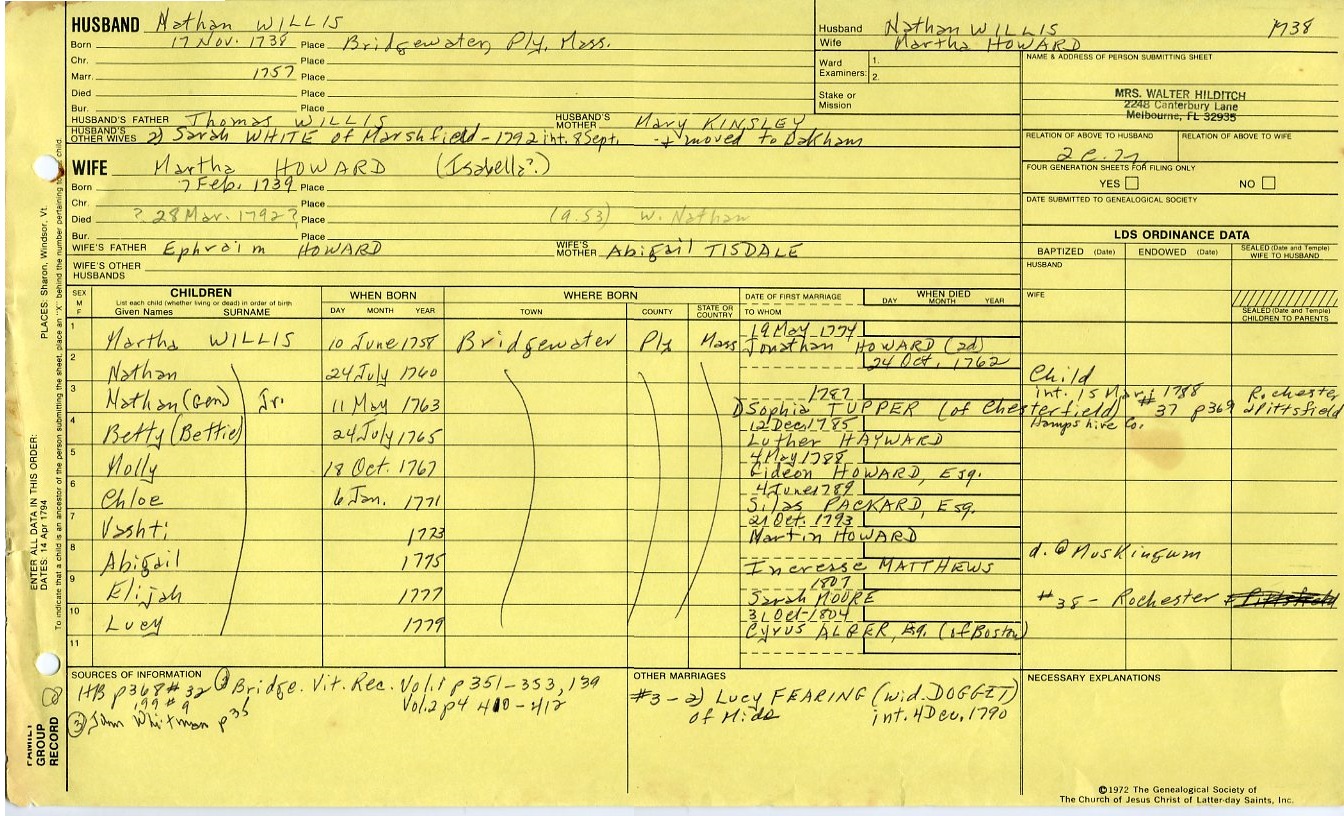 HUSBAND Nathan WILLIS
Born 17 Nov. 1738 Place Bridgewater, Ply, Mass.
Chr. Place
Marr. 1757 Place
Died Place
Bur. Place
HUSBAND'S FATHER Thomas WILLIS HUSBAND'S MOTHER Mary KINSLEY
HUSBAND'S OTHER WIVES 2) Sarah WHITE of Marshfield - 1792 int. 8 Sept. → moved to Oakham
WIFE Martha HOWARD (Isabella?)
Born 7 Feb. 1739 Place
Chr. Place
Died ? 28 Mar. 1792? Place (a. 53) w. Nathan
Bur. Place
WIFE'S FATHER Ephraim HOWARD WIFE'S MOTHER Abigail TISDALE
WIFE'S OTHER HUSBANDS
Husband Nathan WILLIS 1738
Wife Martha HOWARD
Ward Examiners: 1. 2.
Stake or Mission
NAME & ADDRESS OF PERSON SUBMITTING SHEET
MRS. WALTER HILDITCH
2248 Canterbury Lane
Melbourne, FL 32935
RELATION OF ABOVE TO HUSBAND RELATION OF ABOVE TO WIFE
FOUR GENERATION SHEETS FOR FILING ONLY
YES NO
DATE SUBMITTED TO GENEALOGICAL SOCIETY
LDS ORDINANCE DATA
BAPTIZED (Date) ENDOWED (Date) SEALED (Date and Temple) WIFE TO HUSBAND
HUSBAND
WIFE
SEALED (Date and Temple) CHILDREN TO PARENTS
SEX M F CHILDREN List each child (whether living or dead) in order of birth Given Names SURNAME WHEN BORN DAY MONTH YEAR WHERE BORN TOWN COUNTY STATE OR COUNTRY DATE OF FIRST MARRIAGE TO WHOM WHEN DIED DAY MONTH YEAR
1 Martha WILLIS 10 June 1758 Bridgewater Ply Mass 19 May 1774 Jonathan HOWARD (2d)
2 Nathan 24 July 1760 24 Oct. 1762 Child
3 Nathan (Gen) Jr. 11 May 1763 1787 1) Sophia TUPPER (of Chesterfield) Hampshire Co. int. 15 Mar. 1788 #37 p369 Rochester & Pittsfield
4 Betty (Bettie) 24 July 1765 12 Dec. 1785 Luther HAYWARD
5 Molly 18 Oct. 1767 4 May 1788 Gideon HOWARD, Esq.
6 Chloe 6 Jan. 1771 4 June 1789 Silas PACKARD, Esq.
7 Vashti 1773 21 Oct. 1793 Martin HOWARD
8 Abigail 1775 Increase MATTHEWS d. @ Muskingum
9 Elijah 1777 1807 Sarah MOORE #38 - Rochester & Pittsfield
10 Lucy 1779 31 Oct - 1804 Cyrus ALGER, Esq. (of Boston)
11
SOURCES OF INFORMATION
HB p368 #32
199 #9
Bridge. Vit. Rec. Vol. 1 p 351-353, 139
Vol. 2 p4 410-412
③ John Whitman p35
OTHER MARRIAGES
#3 - 2) Lucy FEARING (wid. DOGGET)
of Midd int. 4 Dec. 1790
NECESSARY EXPLANATIONS
©1972 The Genealogical Society of
The Church of Jesus Christ of Latter-day Saints, Inc.
FAMILY GROUP RECORD
ENTER ALL DATA IN THIS ORDER:
DATES: 14 Apr 1794
PLACES: Sharon, Windsor, Vt.
To indicate that a child is an ancestor of the person submitting the sheet, place an "X" behind the number pertaining to child.